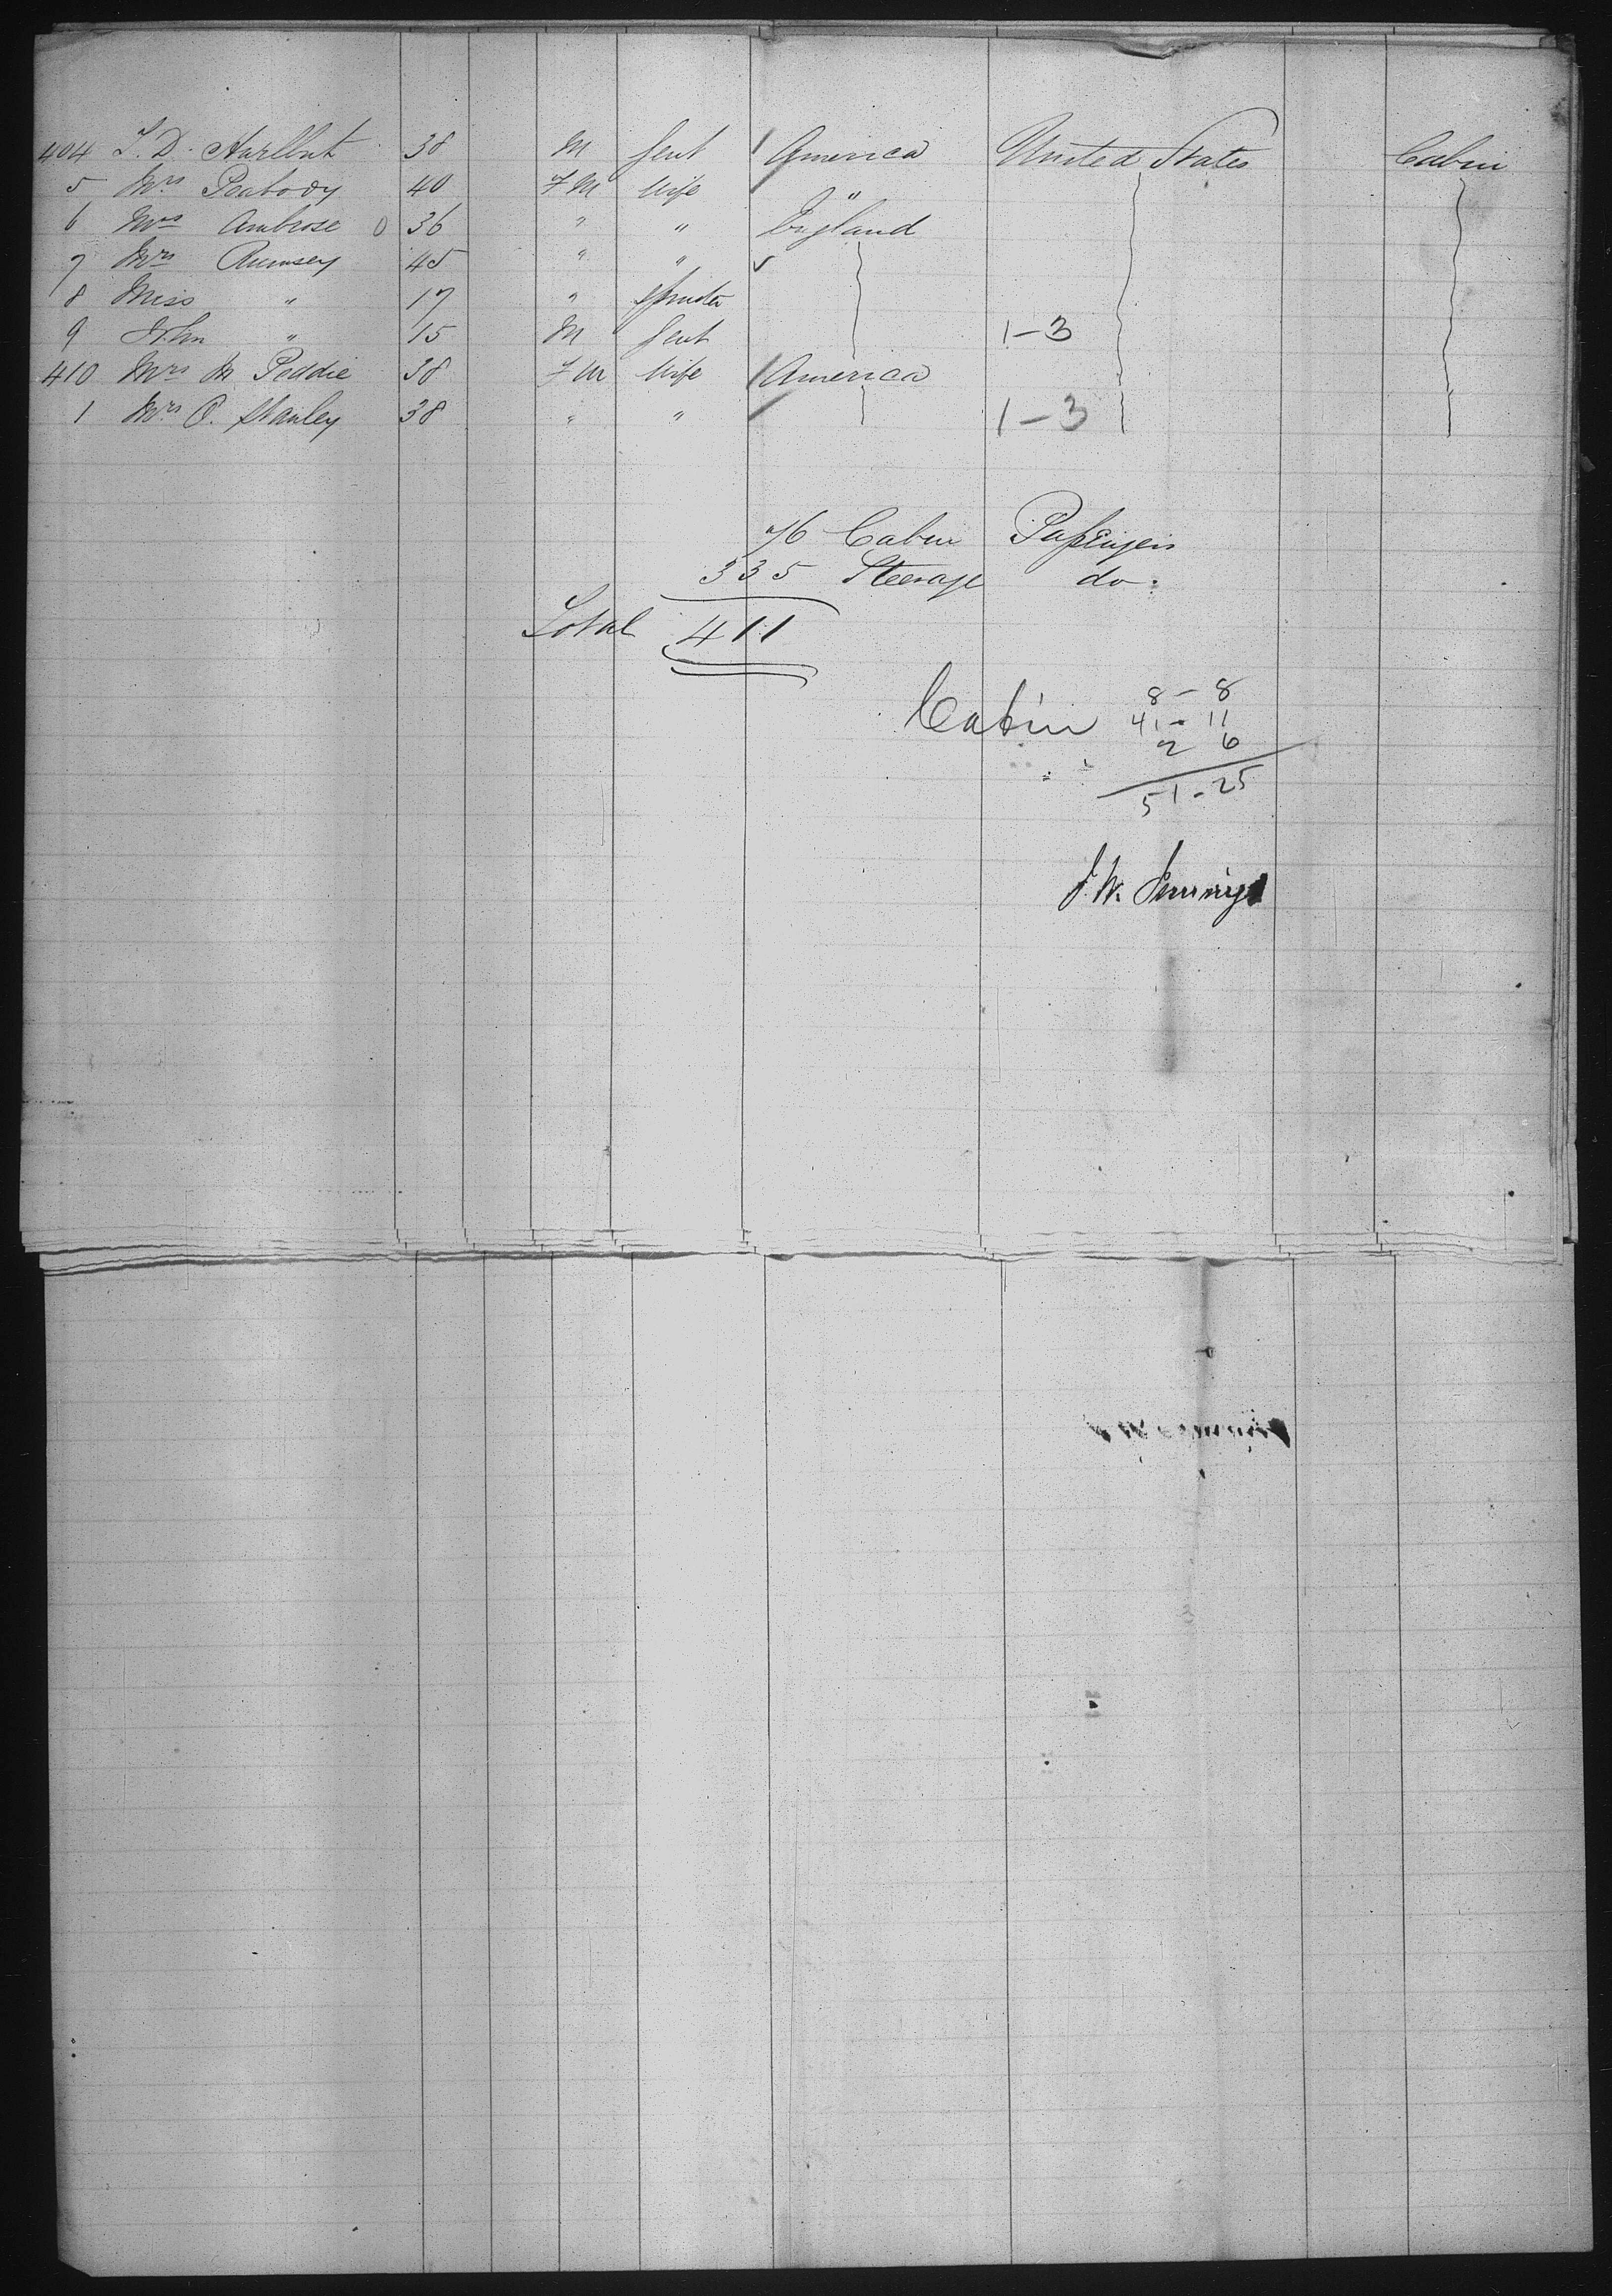 404 T. D. Hurlbut 38 M Gent America United States Cabin
5 Mrs Peabody 40 F M Wife "
6 Mrs Ambrose 0 36 " " England
7 Mrs Rumsey 45 " "
8 Miss " 17 " Spinster
9 John " 15 M Gent 1-3
410 Mrs M Peddie 38 F M Wife America
1 Mrs O. Stanley 38 " " 1-3
76 Cabin Passengers
335 Steerage do.
Total 411
8 - 8
Cabin 41 - 11
2 6
51 - 25
J. W. Jennings